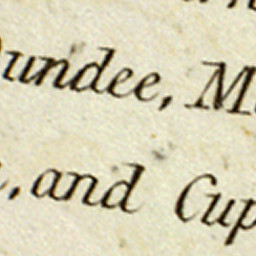 Dundee, M
, and Cup